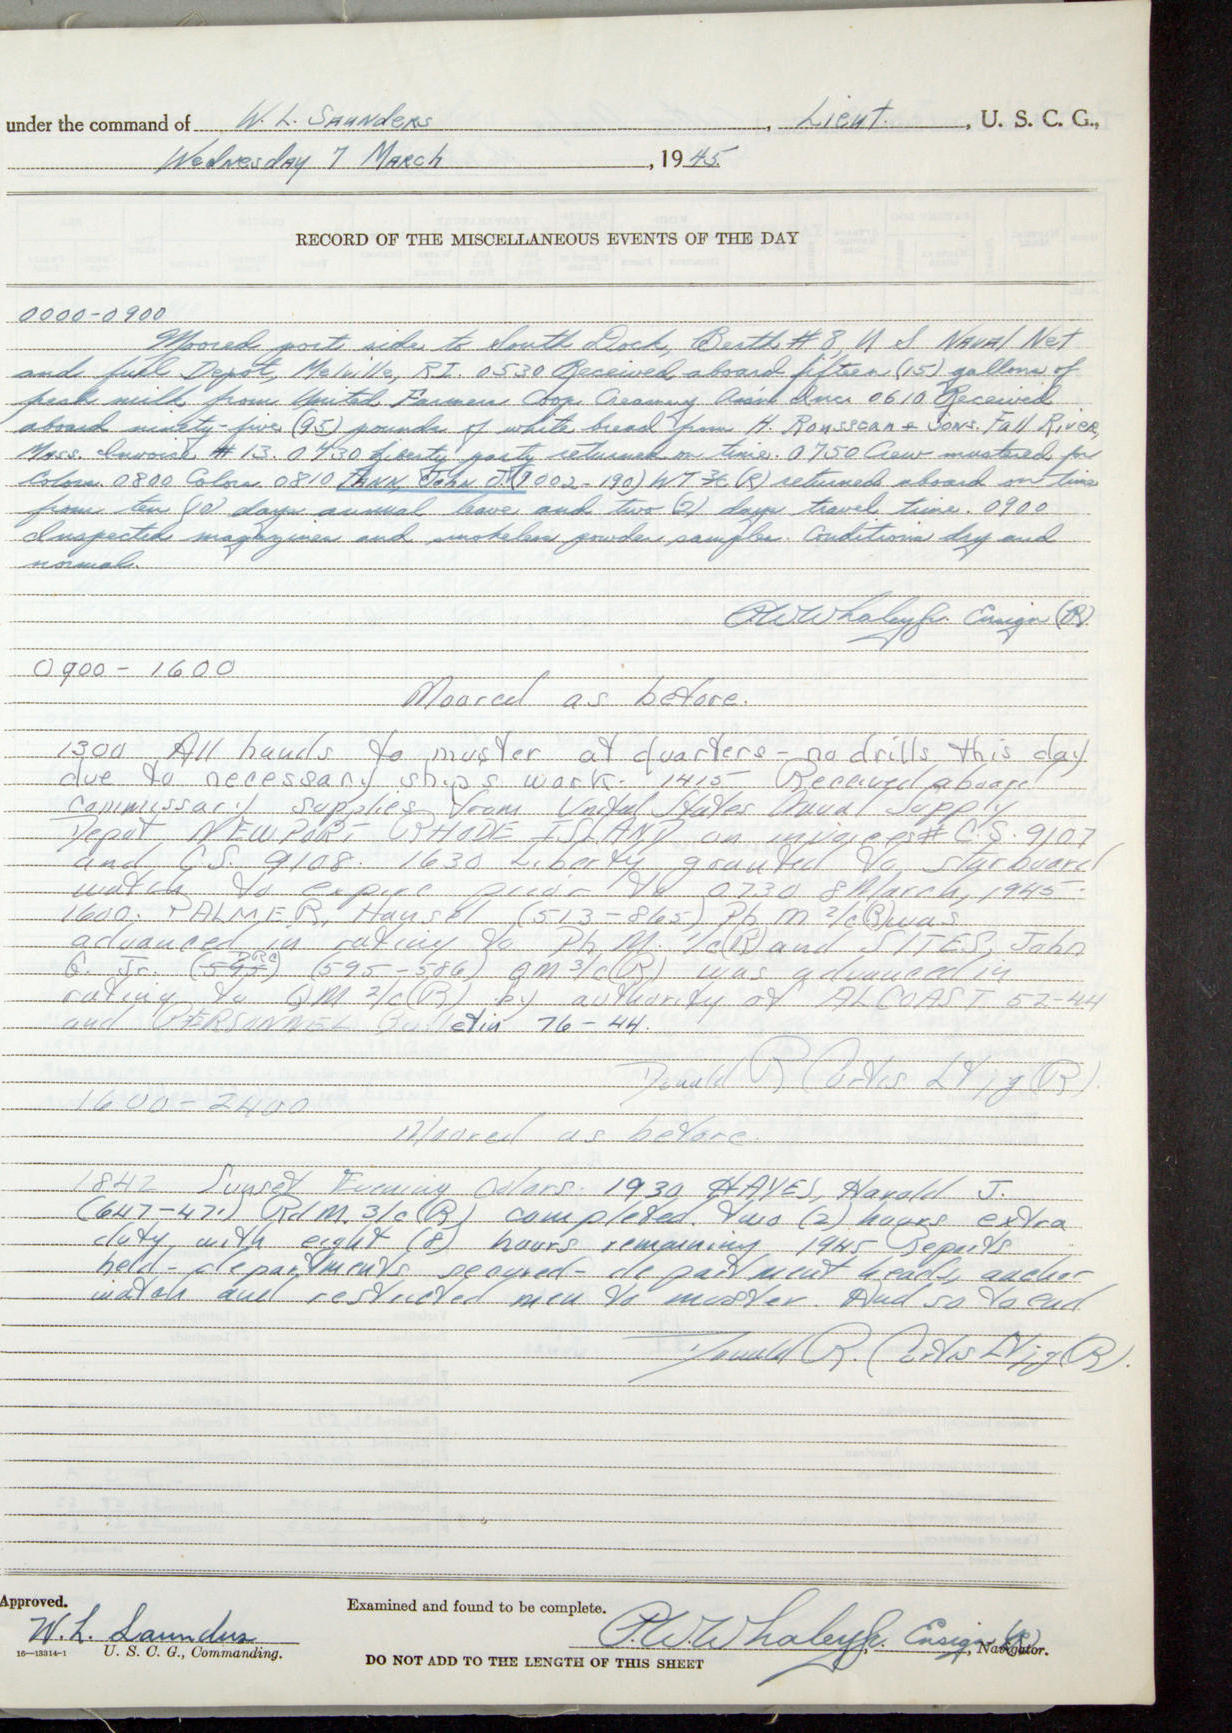 under the command of W. L. Saunders, Lieut., U. S. C. G.,
Wednesday 7 March, 1945
RECORD OF THE MISCELLANEOUS EVENTS OF THE DAY
0000-0900
Moored port side to South Dock, Berth # 8, U S Naval Net
and fuel Depot, Melville, R.I. 0530 Received aboard fifteen (15) gallons of
fresh milk from United Farmers Coop Creamery Ass'n Inc. 0610 Received
aboard ninety-five (95) pounds of white bread from H. Rousseau + Sons. Fall River,
Mass. Invoice # 13. 0730 Liberty party returned on time. 0750 Crew mustered for
Colors. 0800 Colors 0810 John J. 002-190) WT 3/c (R) returned aboard on time
from ten (10) days annual leave and two (2) days travel time. 0900
Inspected magazines and smokeless powder samples. Conditions dry and
normal.
P.W. Whaley Jr. Ensign (R)
0900 - 1600
Moored as before.
1300 All hands to muster at quarters - no drills this day
due to necessary ships work. 1415 Received aboard
commissary supplies from United States Naval Supply
Depot NEWPORT RHODE ISLAND on invoices # C.S. 9107
and C.S. 9108. 1630 Liberty granted to starboard
watch to expire prior to 0730 8 March, 1945.
1600. PALMER, (513-865) Ph M 2/c (R) was
advanced in rating to Ph. M. 1/c (R) and SITES, John
G. Jr. (595) DRC (595-586) GM 3/c (R) was advanced in
rating to GM 2/c (R) by authority of ALCOAST 52-44
and PERSONNEL Bulletin 76-44.
Donald R. Curtis Lt jg (R).
1600-2400
Moored as before.
1842 Sunset Evening Colors. 1930 HAYES, Harold J.
(647-471) RdM. 3/c (R) completed two (2) hours extra
duty with eight (8) hours remaining 1945 Reports
held - departments secured - department heads, anchor
watch and restricted men to muster. And so to end
Donald R. Curtis Lt jg (R).
Approved.
Examined and found to be complete.
W. L. Saunders
P.W. Whaley Jr., Ensign (R), Navigator.
16-13314-1 U. S. C. G., Commanding.
DO NOT ADD TO THE LENGTH OF THIS SHEET